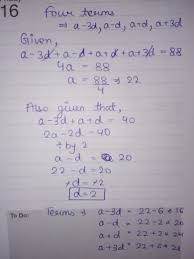 16
four terms
⇒ a-3d, a-d, a+d, a+3d
Given,
a-3d+a-d+a+d+a+3d = 88
4a = 88
a = 88/4 ⇒ 22
Also given that,
a-3d+a+d = 40
2a-2d = 40
÷ by 2
a-d = 20
22-d = 20
+d = +2
d = 2
To Do:
Terms ⇒ a-3d = 22-6 ⇒ 16
a-d = 22-2 ⇒ 20
a+d = 22+2 ⇒ 24
a+3d = 22+6 ⇒ 28